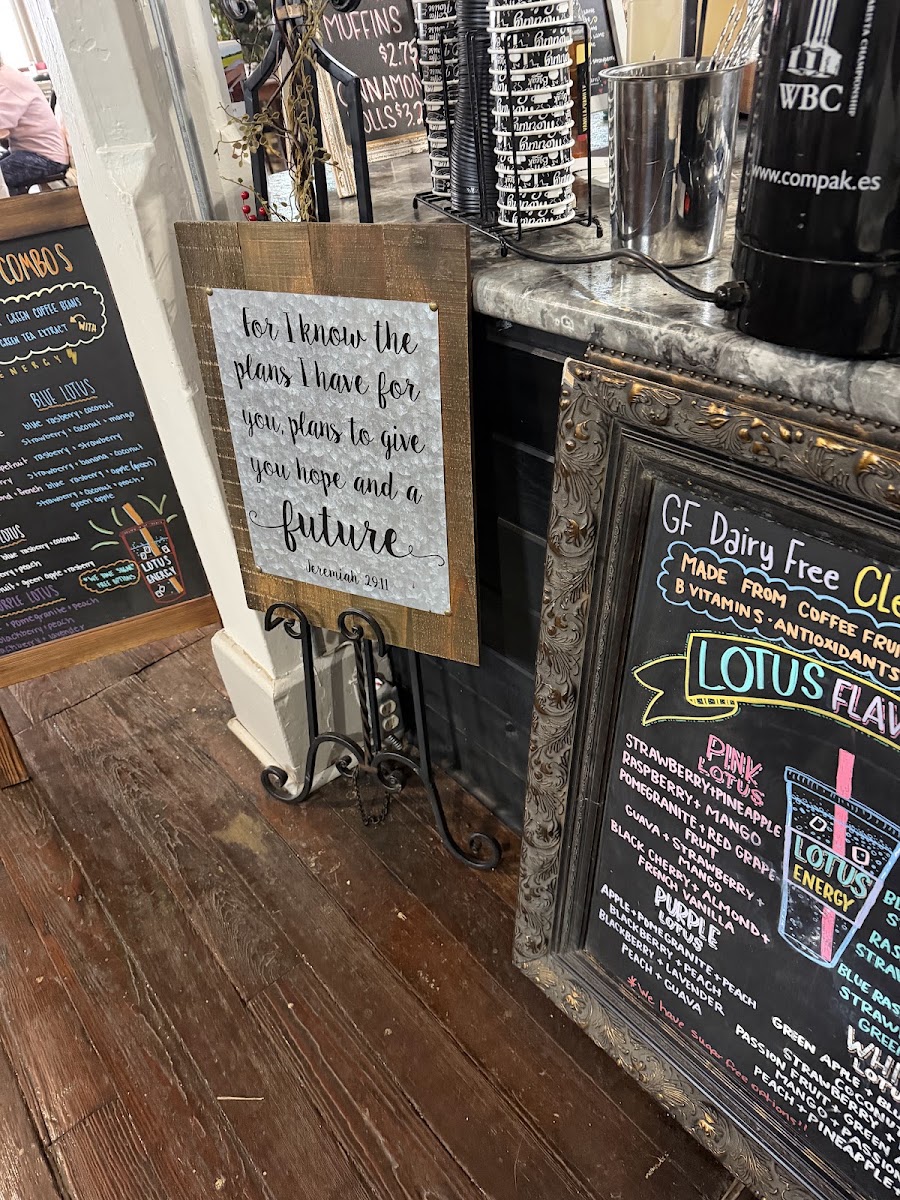 MUFFINS
$2.75
CINNAMON
ROLLS $3.2
WBC
www.compak.es
COMBOS
GREEN COFFEE BEANS
GREEN TEA EXTRACT
WITH
ENERGY
BLUE LOTUS
blue rasberry + coconut
strawberry + coconut + mango
rasberry + strawberry
strawberry + banana + coconut
blue rasberry + apple (green)
strawberry + coconut + peach +
green apple
LOTUS
blue rasberry + coconut
green apple + rasberry
*WE HAVE SUGAR
FREE OPTIONS
LOTUS
ENERGY
PURPLE LOTUS
pomegranite + peach
blackberry + peach
lavender
For I know the
plans I have for
you, plans to give
you hope and a
future
Jeremiah 29:11
GF Dairy Free Cle
MADE FROM COFFEE FRUI
B VITAMINS · ANTIOXIDANTS
LOTUS FLAV
PINK
LOTUS
STRAWBERRY + PINEAPPLE
RASPBERRY + MANGO
POMEGRANITE + RED GRAPE
FRUIT
GUAVA + STRAWBERRY +
MANGO
BLACK CHERRY + ALMOND +
FRENCH VANILLA
PURPLE
LOTUS
APPLE + POMEGRANITE + PEACH
BLACKBERRY + PEACH
BLACKBERRY + LAVENDER
PEACH + GUAVA
*We have sugar free options!!
LOTUS
ENERGY
BLUE RAS
STRAW
GREEN
WHI
LOTU
GREEN APPLE + BLU
STRAWBERRY +
COCONUT
PASSIONFRUIT +
MANGO + GREEN A
PEACH + PASSION
PINEAPPLE +